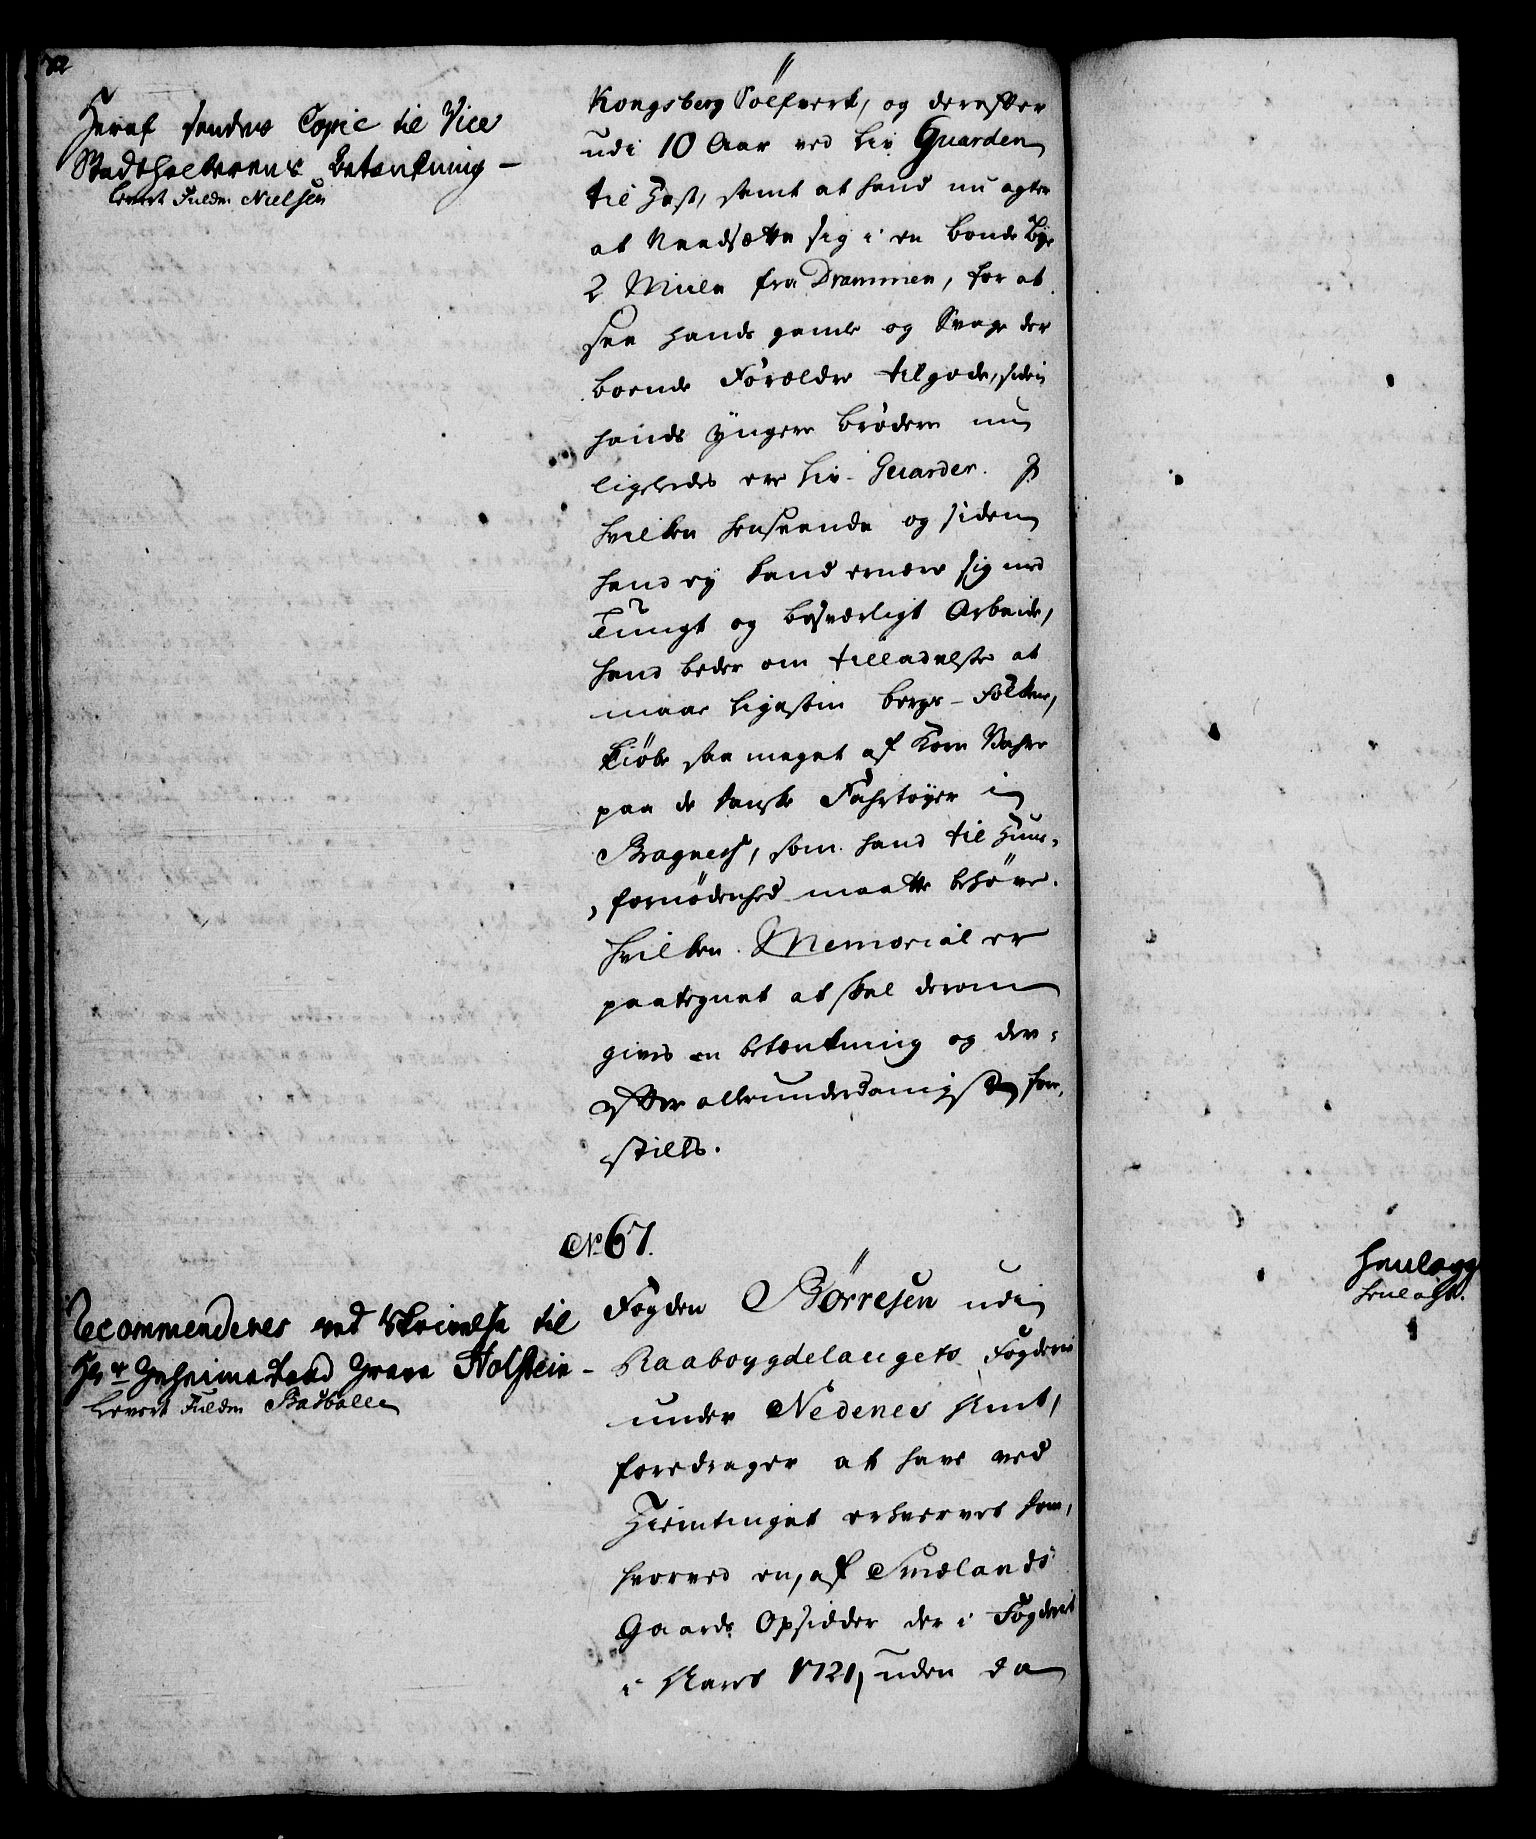 Heraf sendes Copie til Vice
Stadtholderens Betenkning -
Levert Fuldm Nielsen
Kongsberg Sölfverk, og derefter
udi 10 Aar ved Liv Guarden
til Hest, samt at hand nu agter
at Needsætte sig i en bonde Bye
2 Miile fra Drammen, for at
see hands gamle og Svage der
boende Forældre tilgode, siden
hands yngere brödre nu
ligeledes ere Liv-Guarder. J
hvilken henseende og siden
hand ey kand ernære sig med
Tungt og besværligt Arbeide,
hand beder om tilladelse at
maae ligesom berg-Folkene,
kiöbe saa meget af Korn Vahre
paa de danske Fahrtöyer i
Bragnes, som hand til Huus-
fornödenhed maatte behöve.
hvilken Memorial er
paategnet at skal derom
gives en betænkning og der-
efter allerunderdanigst fore-
stilles.
No 67.
Recommenderes ved Skrivelse til
Hr Geheimeraad Greve Holstein -
Levert Fuldm
Fogden Börresen udi
Raaboygdelaugets Fogderie
under Nedenes Amt,
foredrager at have ved
Hiemtinget erhvervet Dom,
hvorved en, af Smælands
Gaards Opsidder der i Fogderiet
i Aaret 1721, uden da
Henlegg
henlagt.